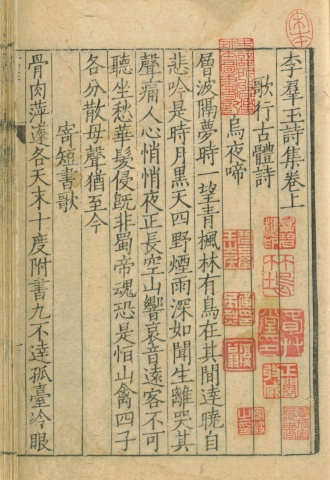 李羣玉詩集卷上
歌行古體詩
烏夜啼
層波隔夢時一望青楓林有鳥在其間達曉自
悲吟是時月黑天四野煙雨深如聞生離哭其
聲痛人心悄悄夜正長空山響哀音遠客不可
聽坐愁華髮侵既非蜀帝魂恐是恒山禽四子
各分散母聲猶至今
寄短書歌
骨肉萍蓬各天末十度附書九不達孤臺冷眼